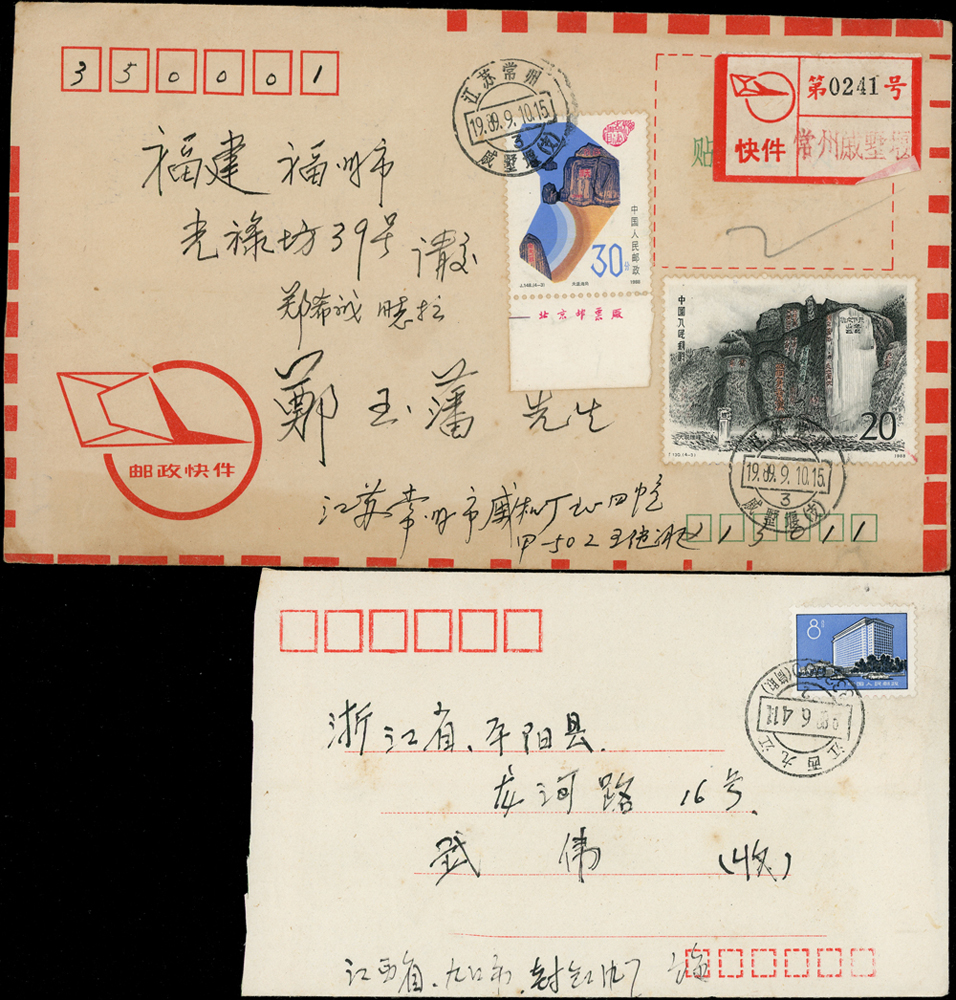 350001
江苏常州
19.89.9.10.15
3
戚墅堰(支)
第0241号
快件
常州戚墅堰
贴
福建 福州市
光禄坊39号
请交
郑希诚
中国人民邮政
30分
J.148.(4-3)
1988
北京邮票厂
中国人民邮政
20
T130.(4-3)
1988
江苏常州
19.89.9.10.15
3
戚墅堰(支)
郑玉藩 先生
邮政快件
江苏常州市戚
甲-502
213011
8分
中国人民邮政
江西九江
浙江省、平阳县.
龙河路 16号.
武 伟 (收)
江西省.九江市